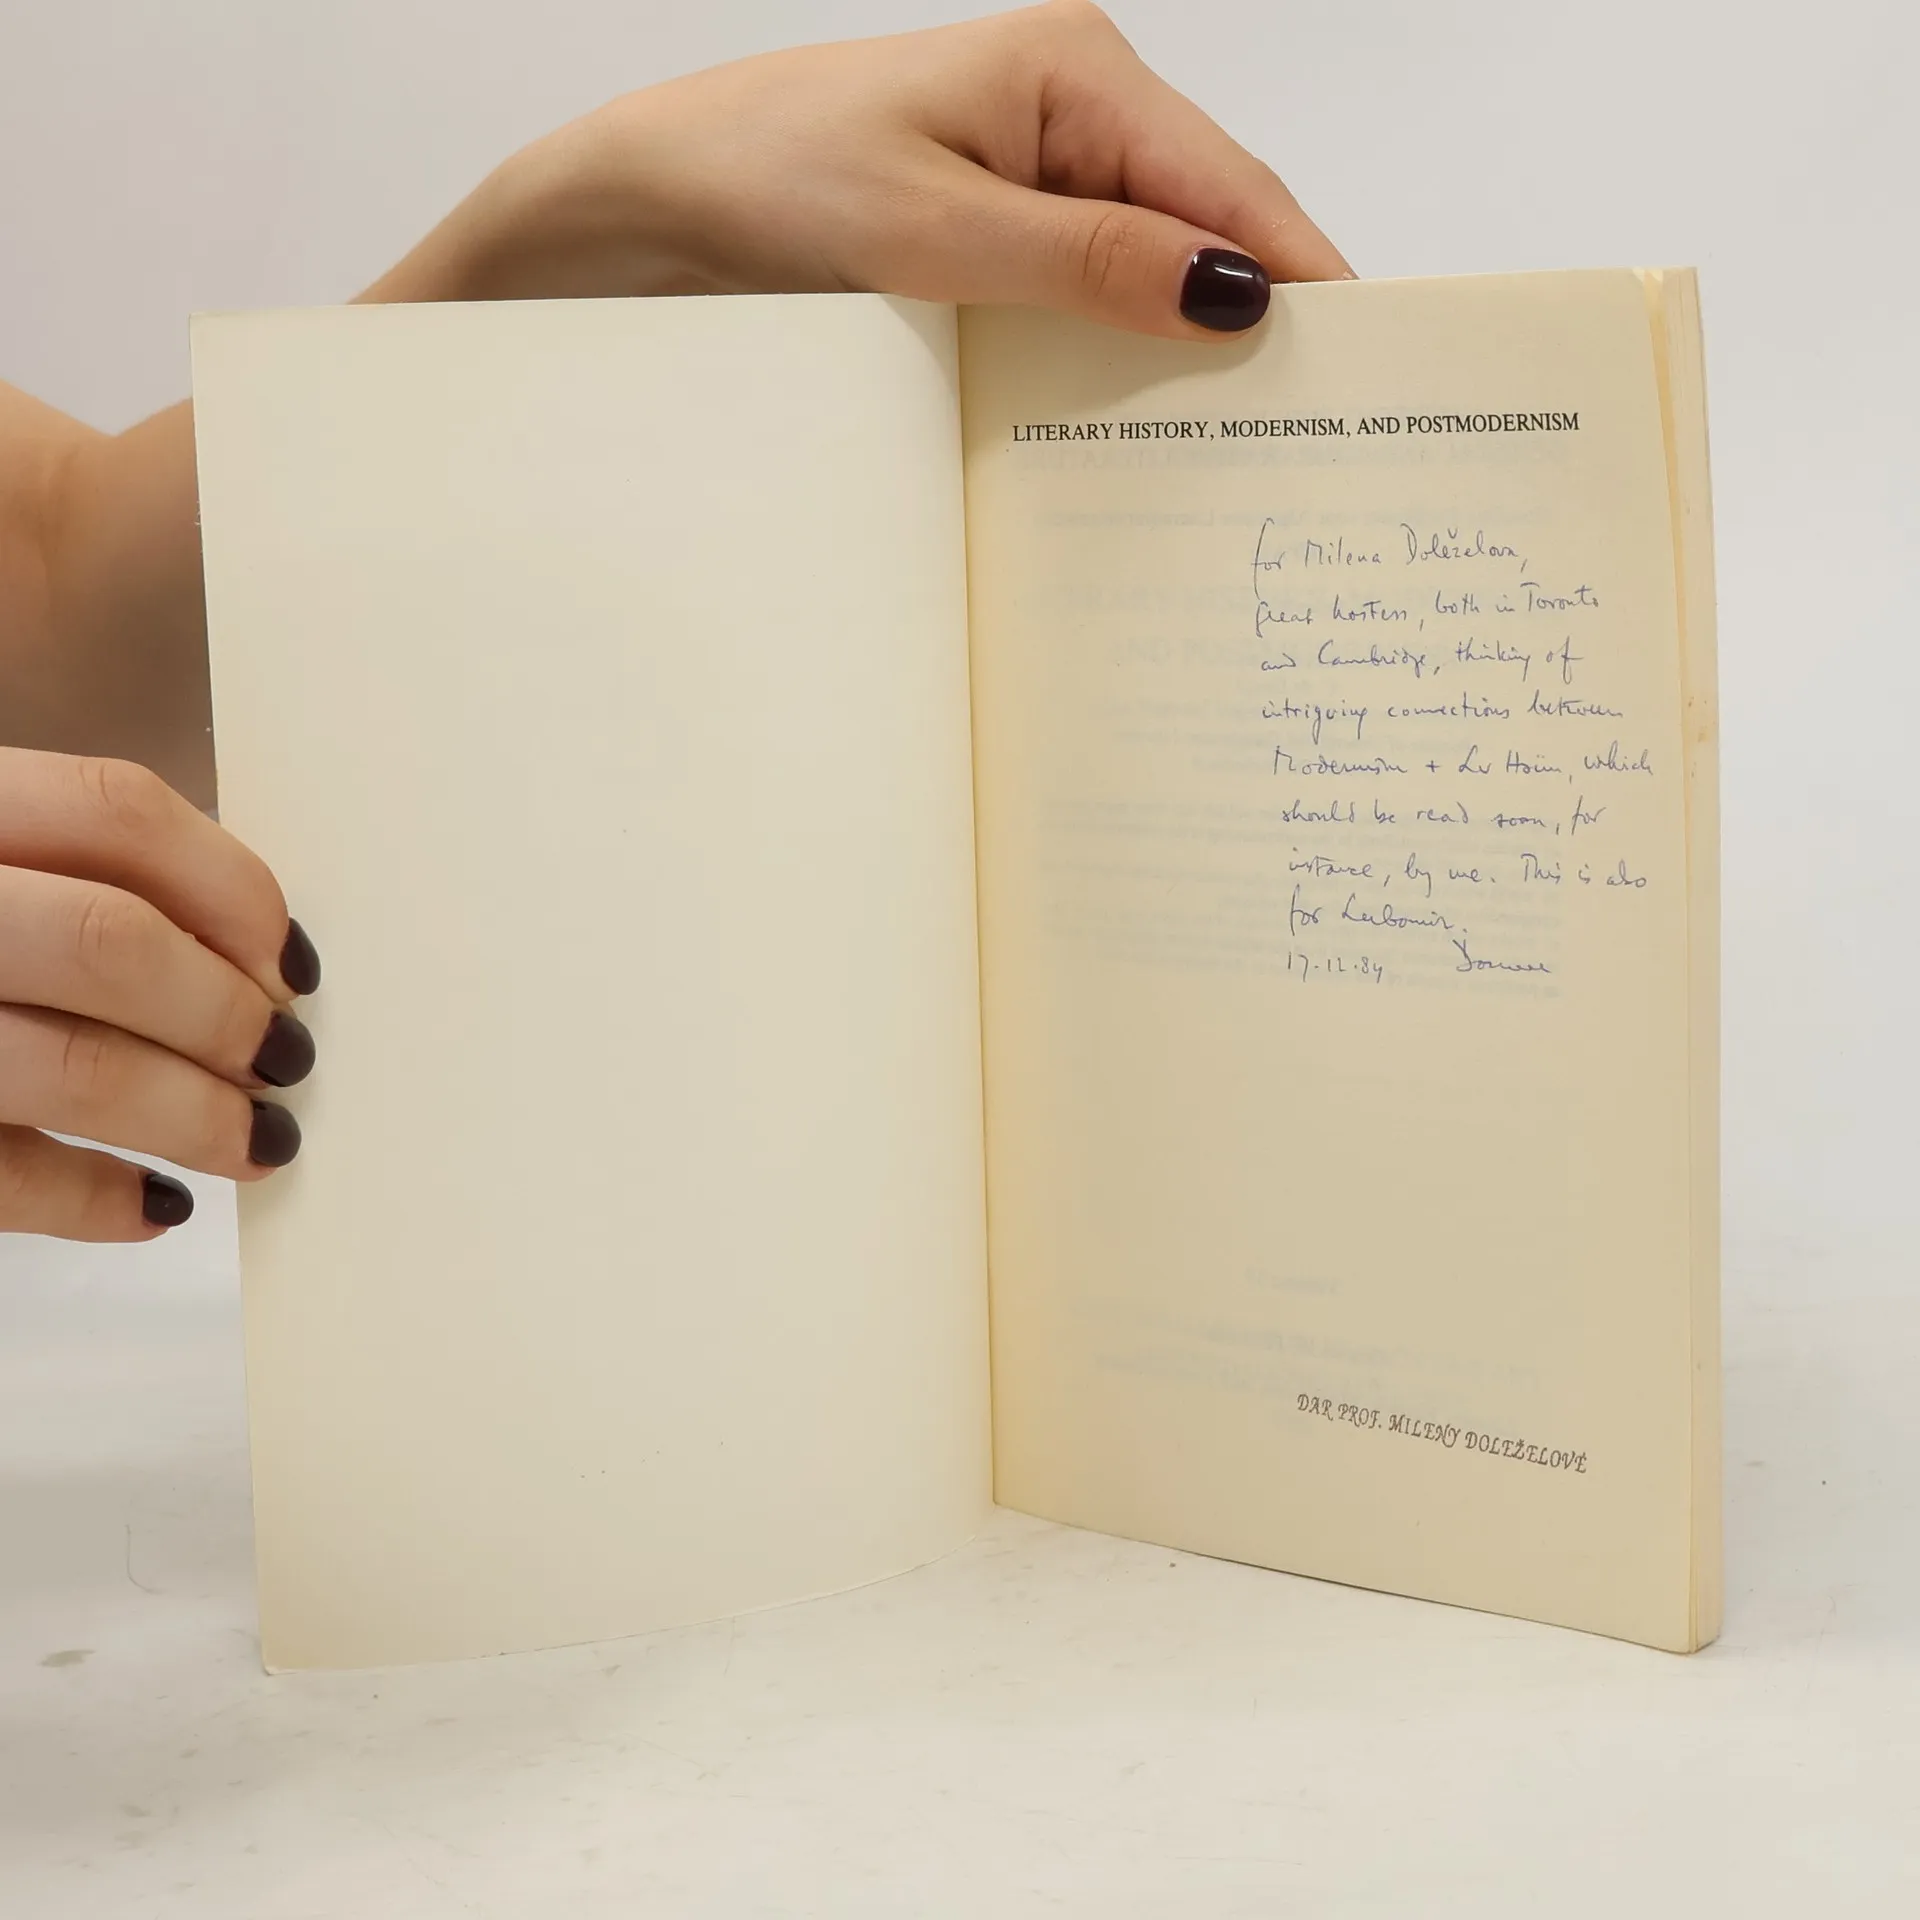 LITERARY HISTORY, MODERNISM, AND POSTMODERNISM
for Milena Doleželova,
great hostess, both in Toronto
and Cambridge, thinking of
intriguing connections between
Modernism + Lu Hsün, which
should be read soon, for
instance, by me. This is also
for Lubomir.
17.12.84 Douwe
DAR PROF. MILENY DOLEŽELOVÉ